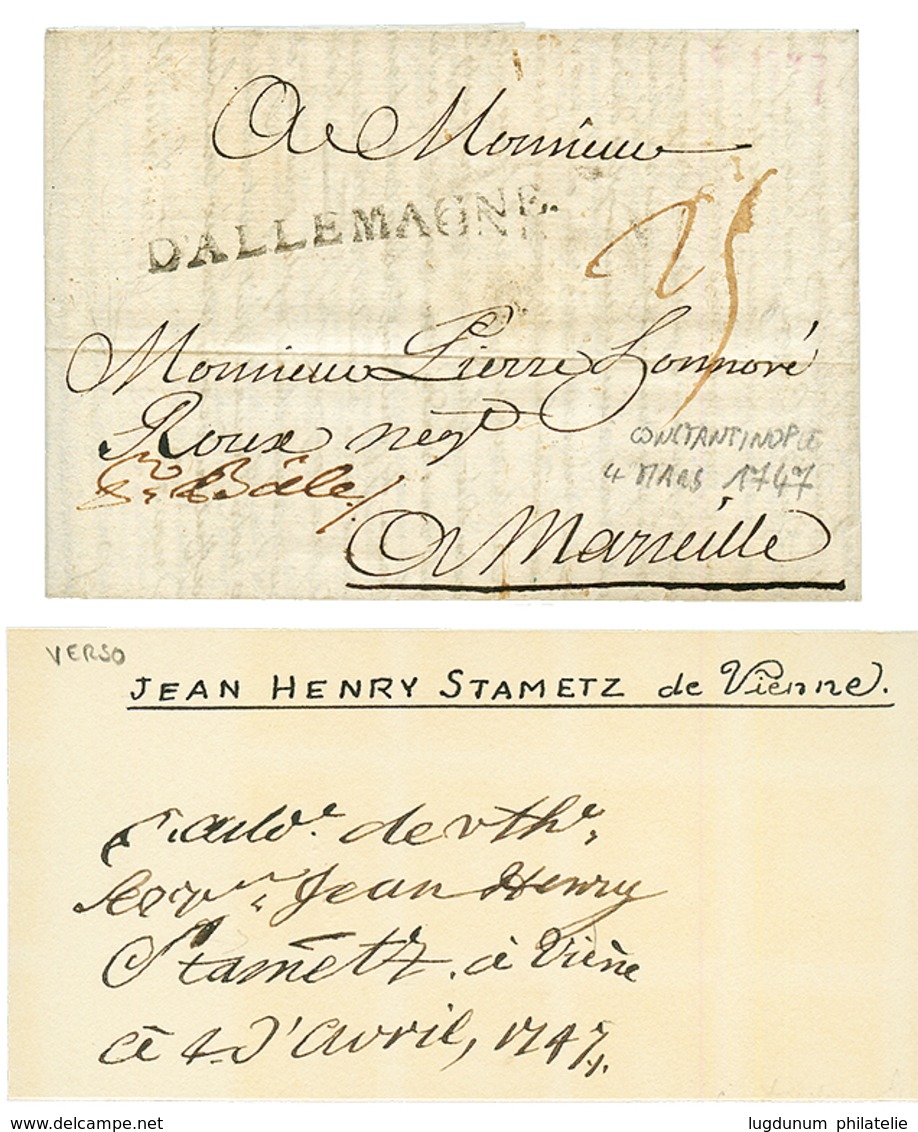 A Monsieur
D'ALLEMAGNE.
25
Monsieur Pierre Honnoré
Roux negt
Bâle /.
CONSTANTINOPLE
4 MARS 1747
A Marseille
VERSO
JEAN HENRY STAMETZ de Vienne.
de vtre
Jean Henry
Stametz. à Viene
ce 4 d'avril, 1747,,
delcampe.net
lugdunum philatelie